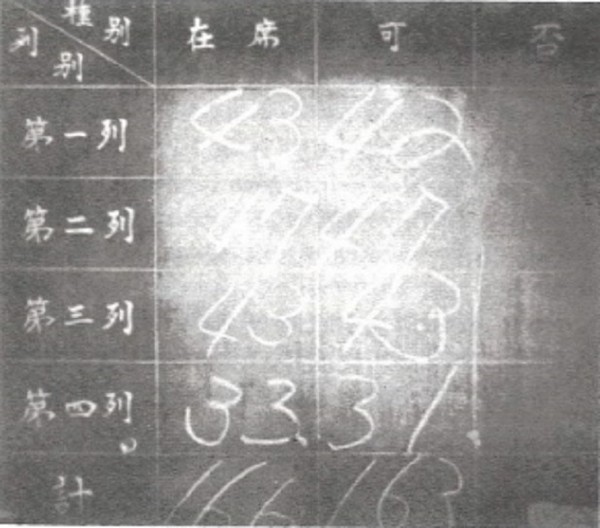 種別 在席 可 否
列別
第一列 43 42
第二列 47 47
第三列 43 43
第四列 33 31
計 166 163